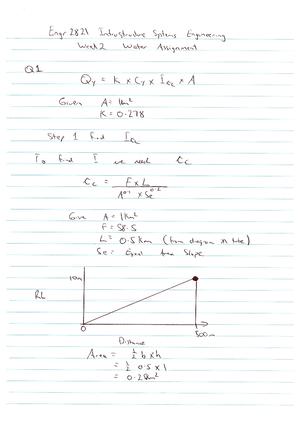 Engr 2821 Infrastructure Systems Engineering
Week 2 Water Assignment
Q1
Qy = K × Cy × I × A
Given A = 1km²
K = 0.278
Step 1 find I
To find I we need tc
tc = F × L
A^0.1 × Se^0.2
Give A = 1km²
F = 58.5
L = 0.5km (from diagram in
Se = Equal Area Slope
10m
RL
0
500m
Distance
Area = ½ b × h
= ½ 0.5 × 1